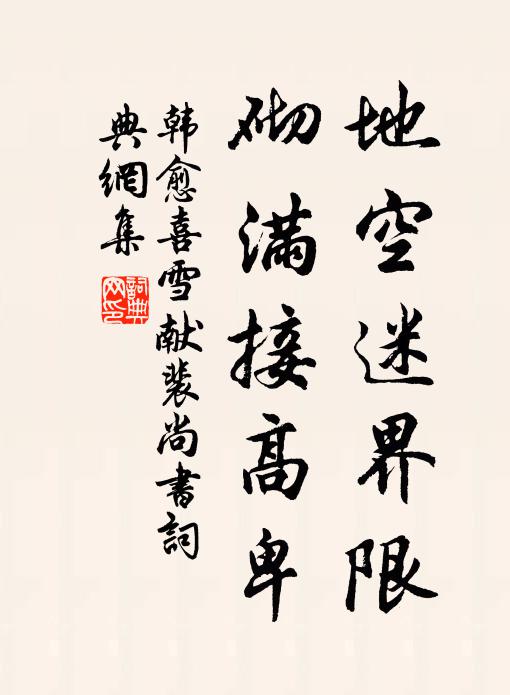 地空迷界限
砌满接高卑
韩愈喜雪献裴尚書詞
典網集
詞典
网印